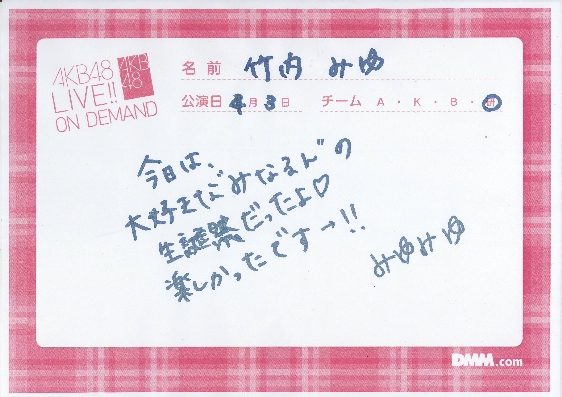 AKB48
LIVE!!
ON DEMAND
AKB
48
名前 竹内 みゆ
公演日 4月3日 チーム A・K・B・研
今日は、
大好きな"みなるん"の
生誕祭だったよ♡
楽しかったです→!!
みゆみゆ
DMM.com